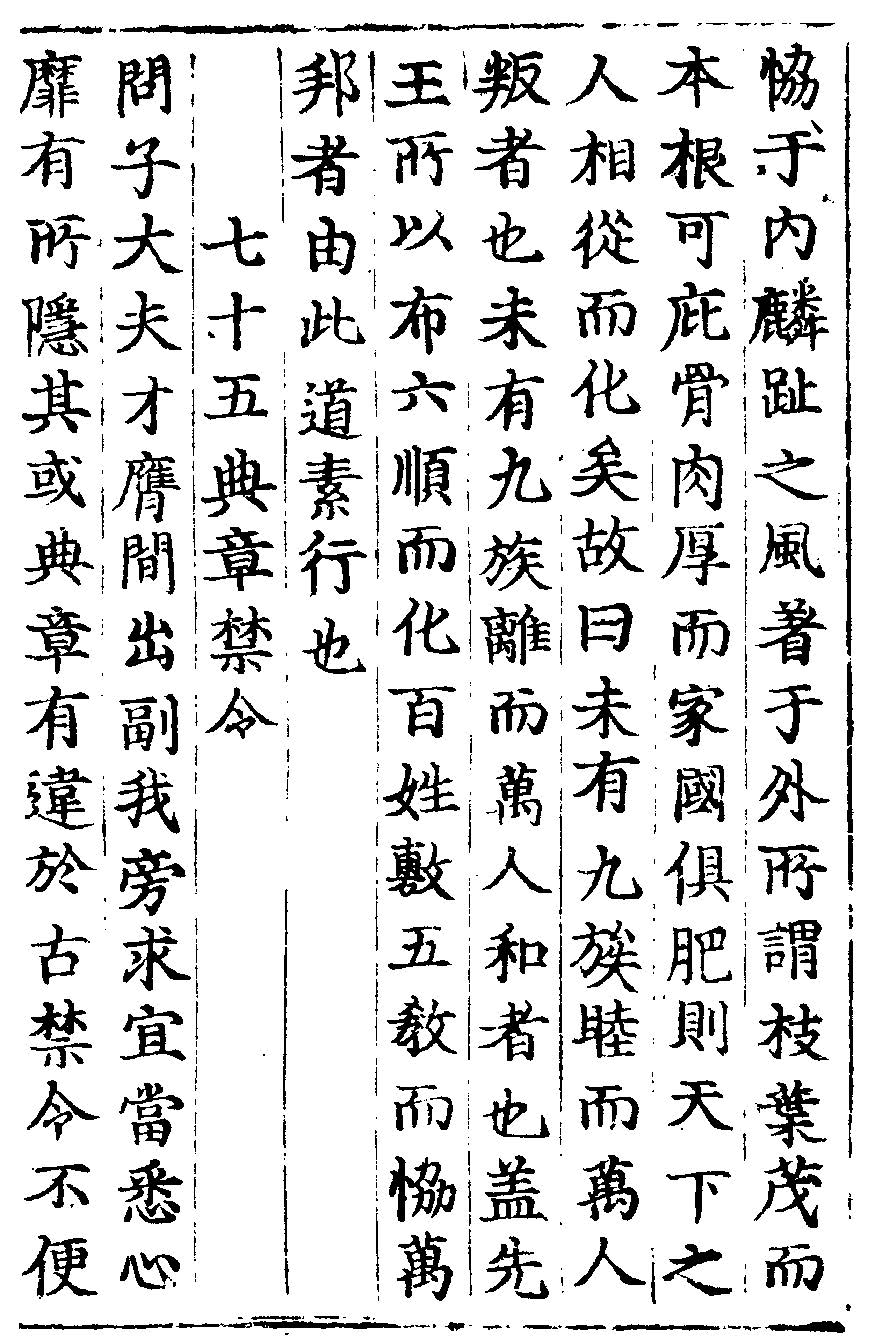 恊于内麟趾之風著于外所謂枝葉茂而
本根可庇骨肉厚而家國俱肥則天下之
人相從而化矣故曰未有九族睦而萬人
叛者也未有九族離而萬人和者也盖先
王所以布六順而化百姓敷五教而恊萬
邦者由此道素行也
七十五典章禁令
問子大夫才膺間出副我旁求宜當悉心
靡有所隱其或典章有違於古禁令不便